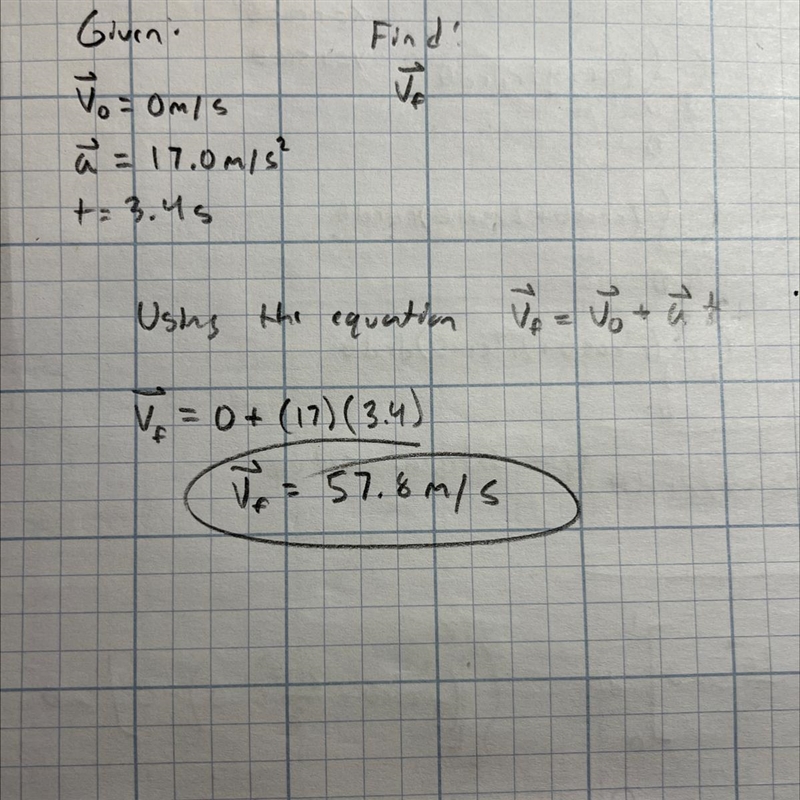 Given: Find:
V⃗₀ = 0m/s V⃗f
a⃗ = 17.0m/s²
t = 3.4s
Using the equation V⃗f = V⃗₀ + a⃗ t
V⃗f = 0 + (17)(3.4)
V⃗f = 57.8 m/s